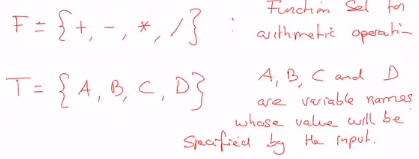 F = {+, -, *, /} : Function Set for
arithmetic operation
T = {A, B, C, D} A, B, C and D
are variable names
whose value will be
specified by the input.